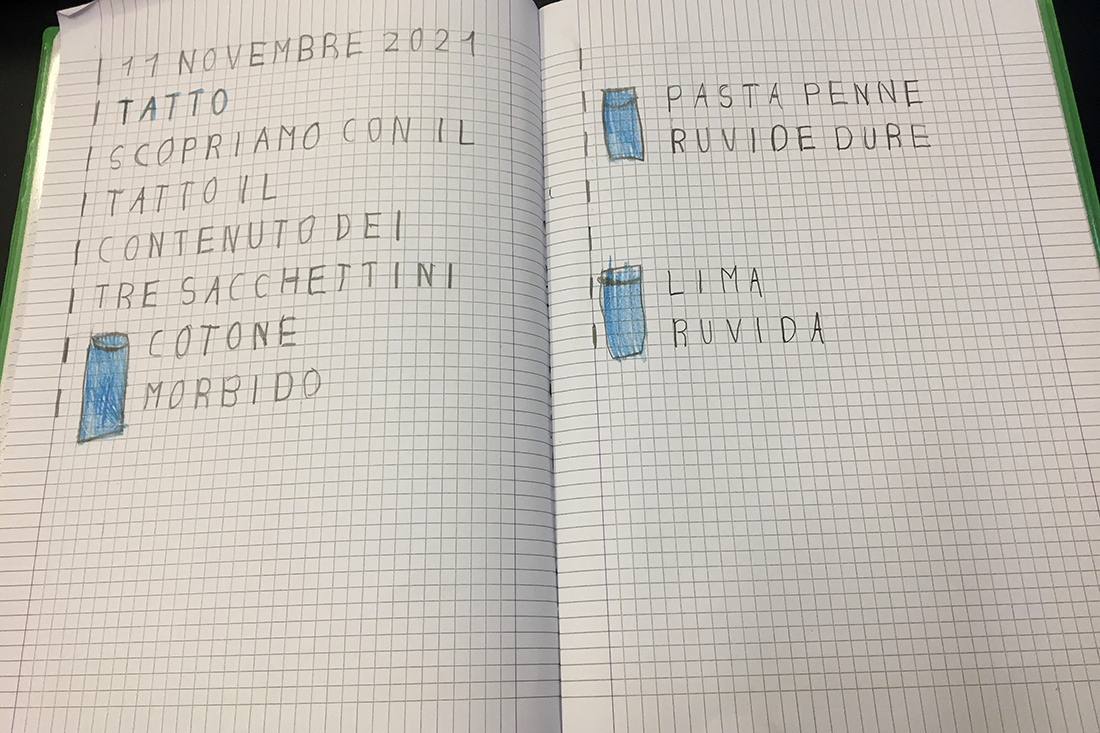 11 NOVEMBRE 2021
TATTO
SCOPRIAMO CON IL
TATTO IL
CONTENUTO DEI
TRE SACCHETTINI
COTONE
MORBIDO
PASTA PENNE
RUVIDE DURE
LIMA
RUVIDA